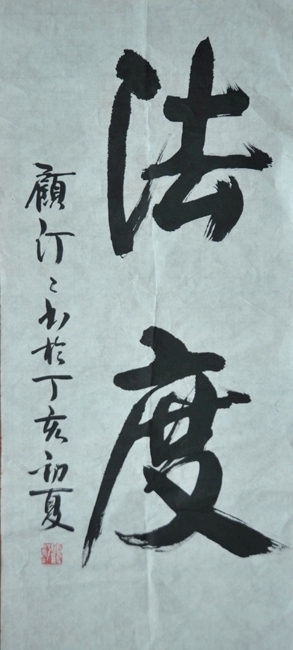 法度
顧汀汀書於丁亥初夏